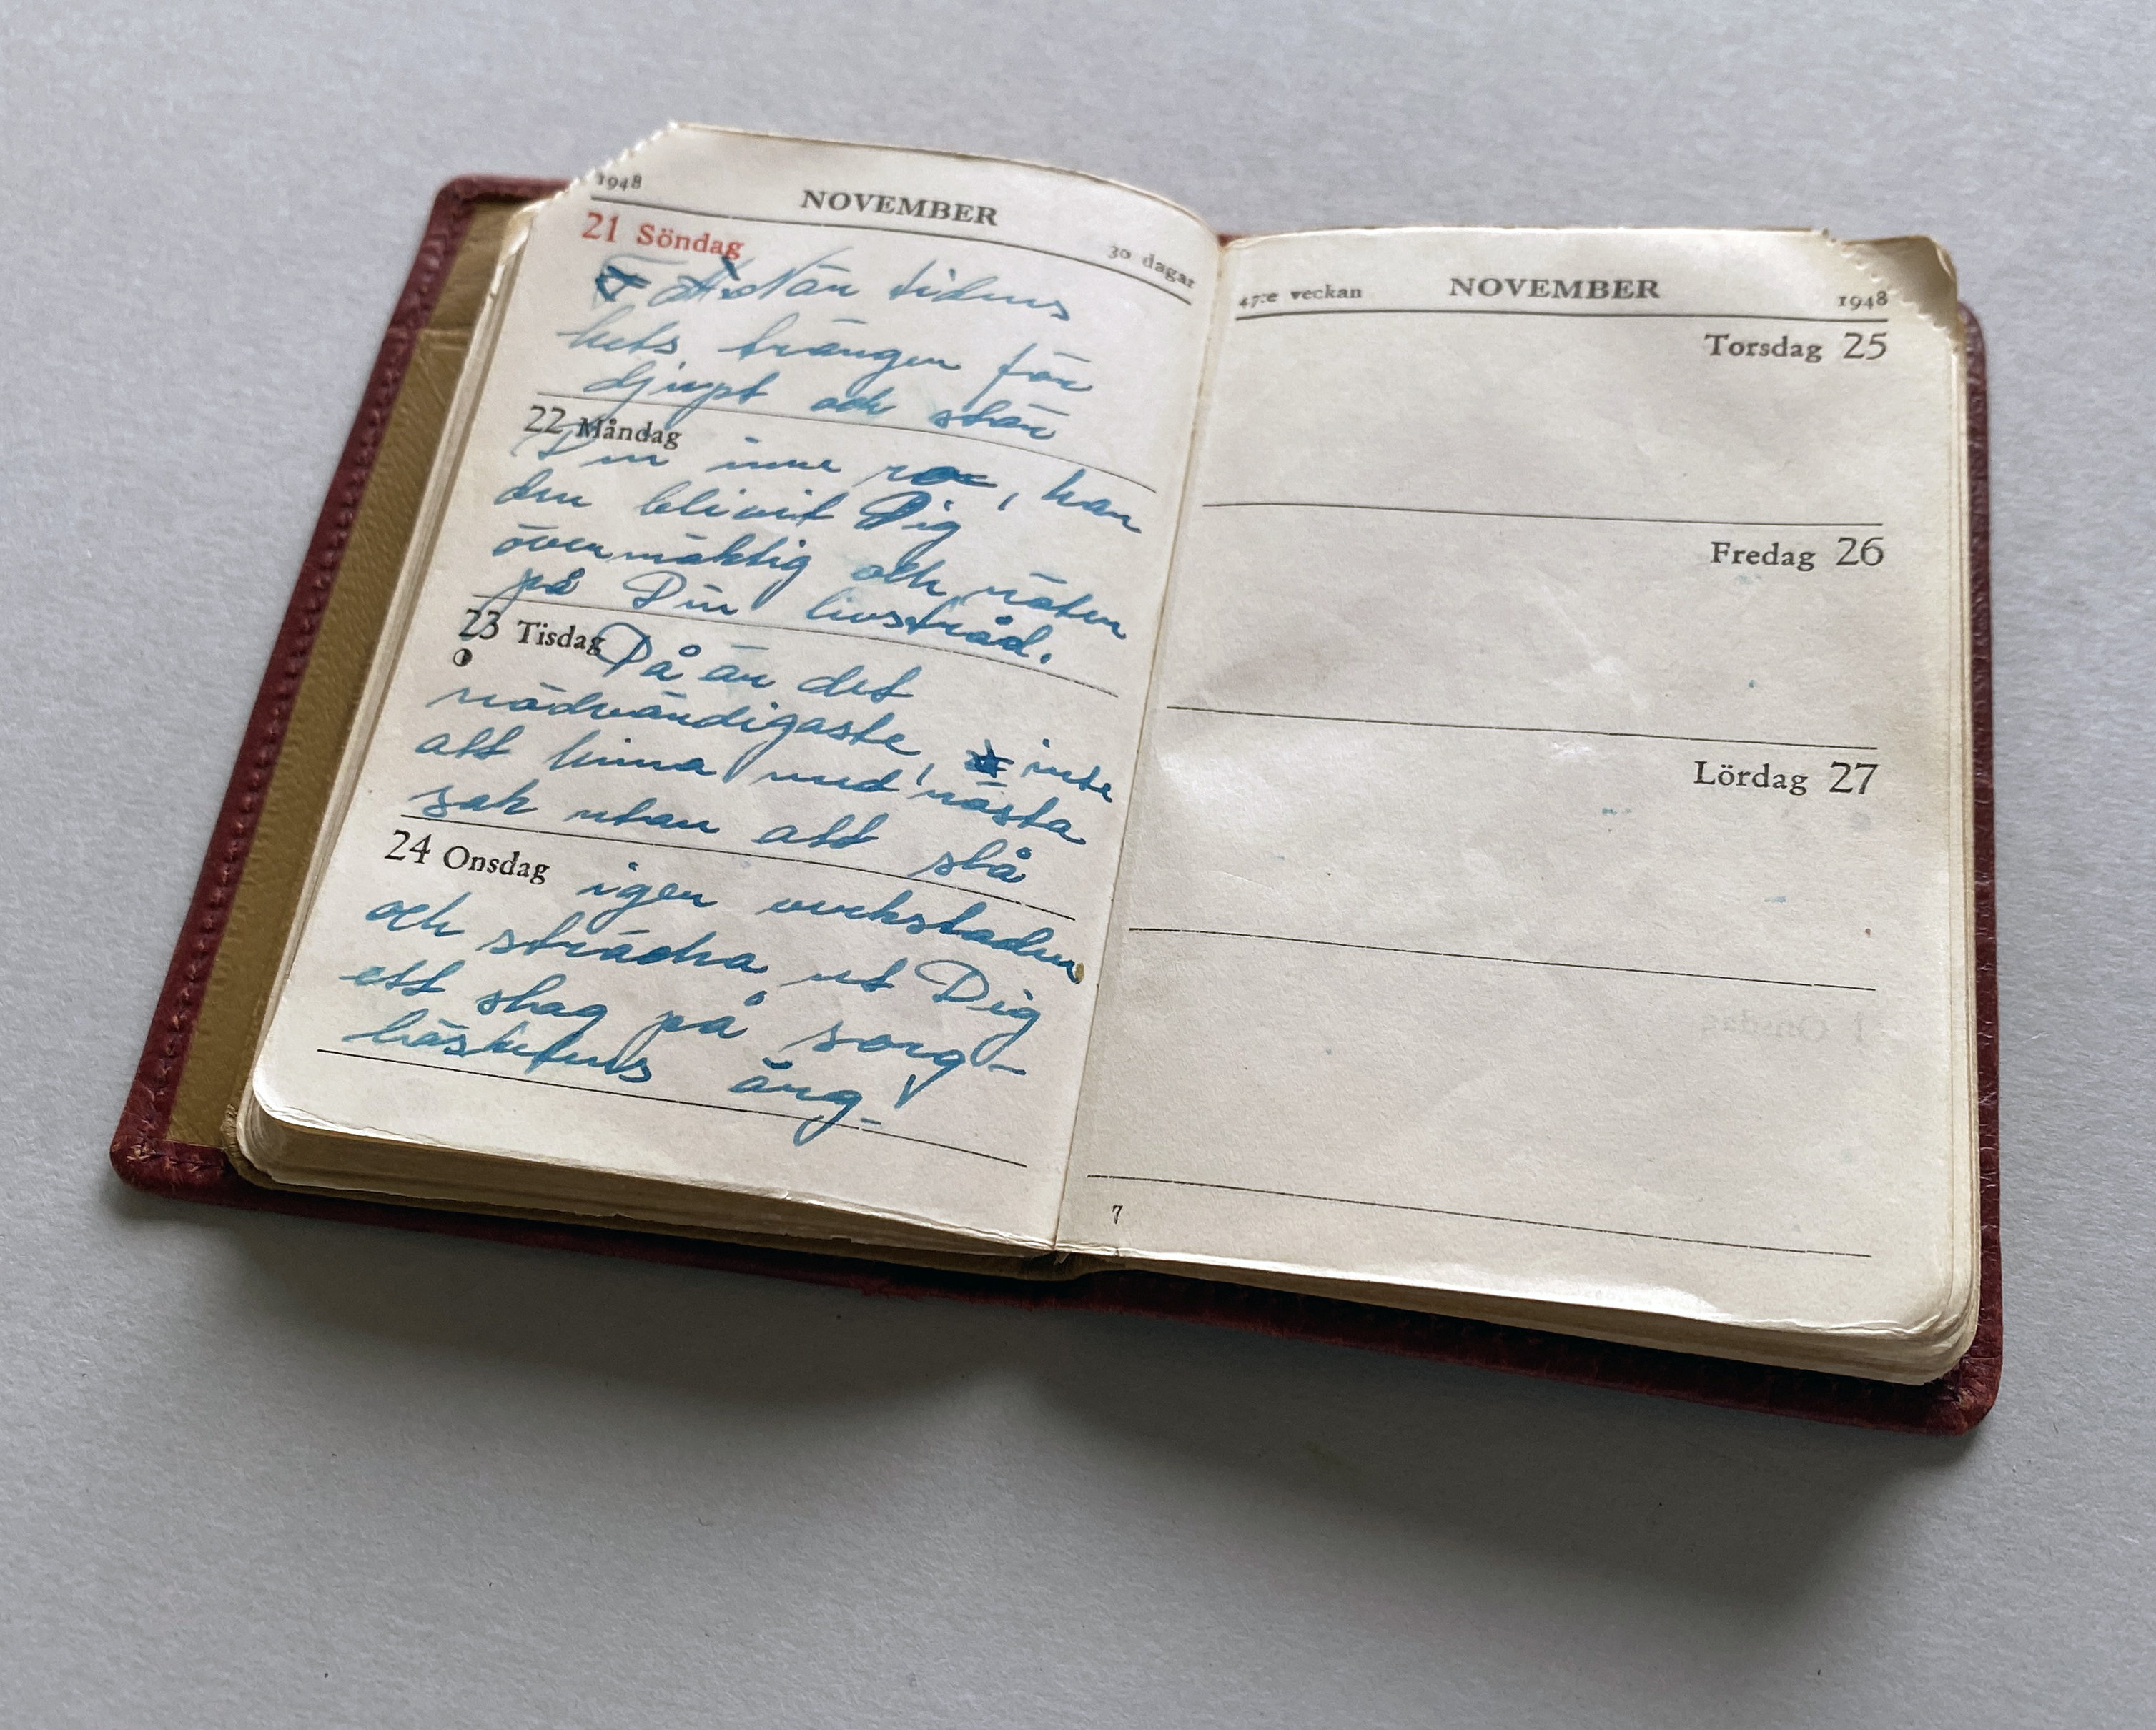 1948 NOVEMBER 30 dagar
21 Söndag
När tidens
hets tränger för
djupt och stör
22 Måndag
Din inre ro, har
den blivit Dig
övermäktig och nöter
på Din livstråd.
23 Tisdag Då är det
nödvändigaste, inte
att hinna med nästa
sak utan att slå
24 Onsdag igen verkstaden
och sträcka ut Dig
ett slag på sorg-
löshetens äng!
47:e veckan NOVEMBER 1948
Torsdag 25
Fredag 26
Lördag 27
7